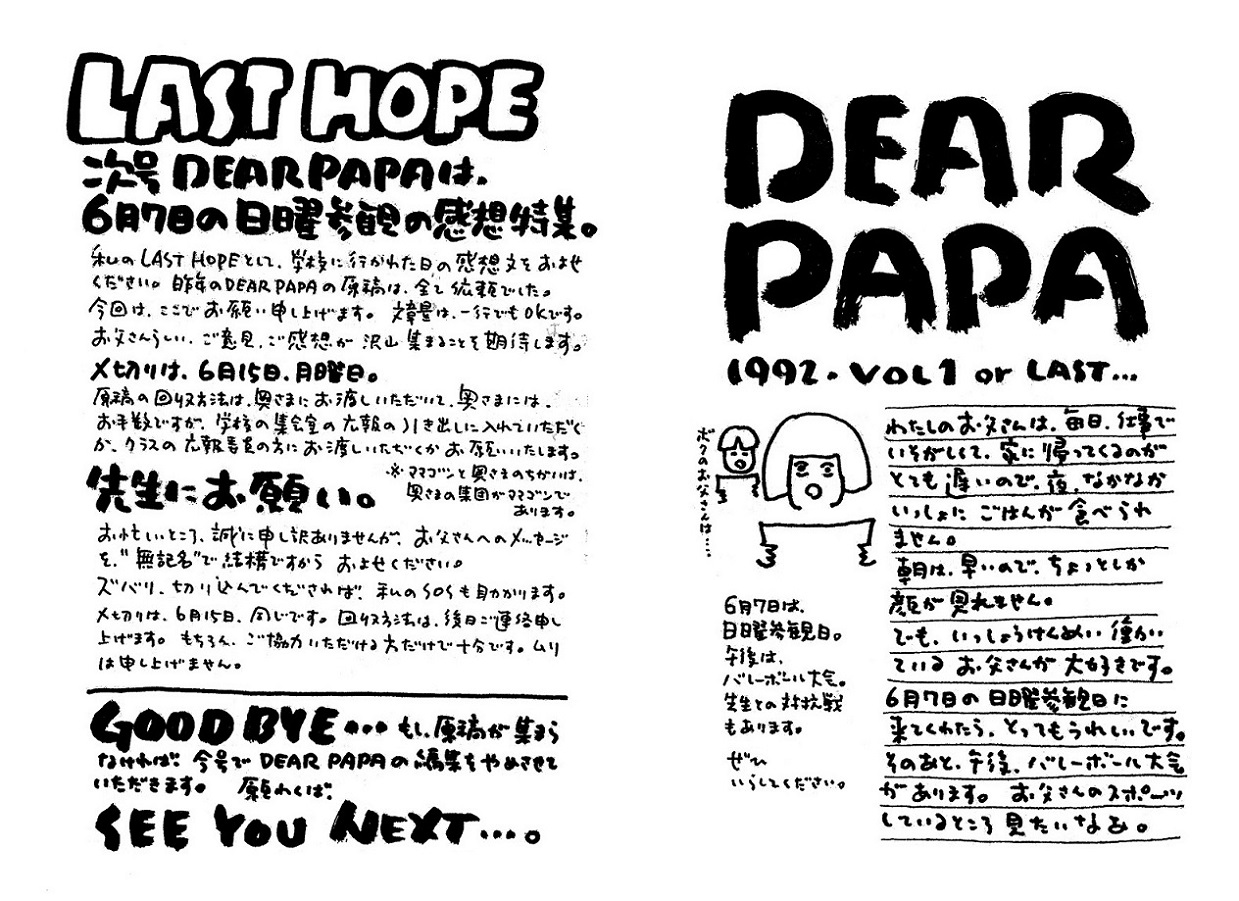 LAST HOPE
次号 DEAR PAPAは、
6月7日の日曜参観の感想特集。
私のLAST HOPEとして、学校に行かれた日の感想文をおよせ
ください。昨年のDEAR PAPAの原稿は、全て依頼でした。
今回は、ここでお願い申し上げます。 文章量は、一行でもOKです。
お父さんらしい、ご意見、ご感想が沢山集まることを期待します。
〆切りは、6月15日、月曜日。
原稿の回収方法は、奥さまにお渡しいただいて、奥さまには、
お手数ですが、学校の集会室の広報の引き出しに入れていただく
か、クラスの広報委員の方にお渡しいただくかお願いいたします。
※ママゴンと奥さまのちがいは、
奥さまの集団がママゴンで
あります。
先生にお願い。
お忙しいところ、誠に申し訳ありませんが、お父さんへのメッセージ
を、"無記名"で結構ですから およせください。
ズバリ、切り込んでくだされば、私のSOSも助かります。
〆切りは、6月15日、同じです。回収方法は、後日ご連絡申し
上げます。もちろん、ご協力いただける方だけで十分です。ムリ
は申し上げません。
GOOD BYE…もし、原稿が集まら
なければ、今号で DEAR PAPAの編集をやめさせて
いただきます。 願わくば、
SEE YOU NEXT…。
DEAR
PAPA
1992. VOL1 or LAST...
ボクのお父さんは…
わたしのお父さんは、毎日、仕事で
いそがしくて、家に帰ってくるのが
とても遅いので、夜、なかなか
いっしょに ごはんが食べられ
ません。
朝は、早いので、ちょっとしか
顔が見れません。
でも、いっしょうけんめい 働い
ている お父さんが 大好きです。
6月7日の日曜参観日に
来てくれたら、とってもうれしいです。
そのあと、午後、バレーボール大会
があります。 お父さんのスポーツ
しているところ 見たいなあ。
6月7日は、
日曜参観日。
午後は、
バレーボール大会。
先生との対抗戦
もあります。
ぜひ
いらしてください。